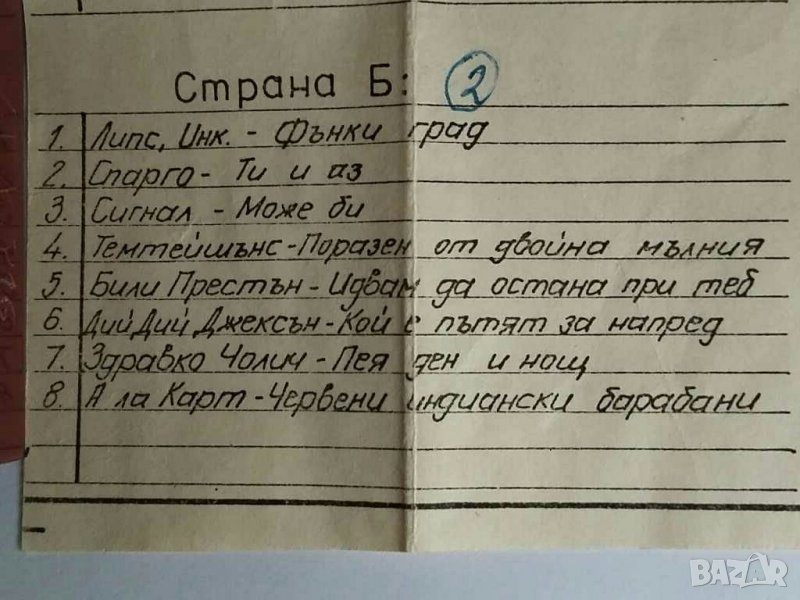 Страна Б: 2
1. Липс, Инк. - Фънки град
2. Спарго - Ти и аз
3. Сигнал - Може би
4. Темтейшънс - Поразен от двойна мълния
5. Били Престън - Идвам да остана при теб
6. Дий Дий Джексън - Кой е пътят за напред
7. Здравко Чолич - Пея ден и нощ
8. А ла Карт - Червени индиански барабани
BAZAR